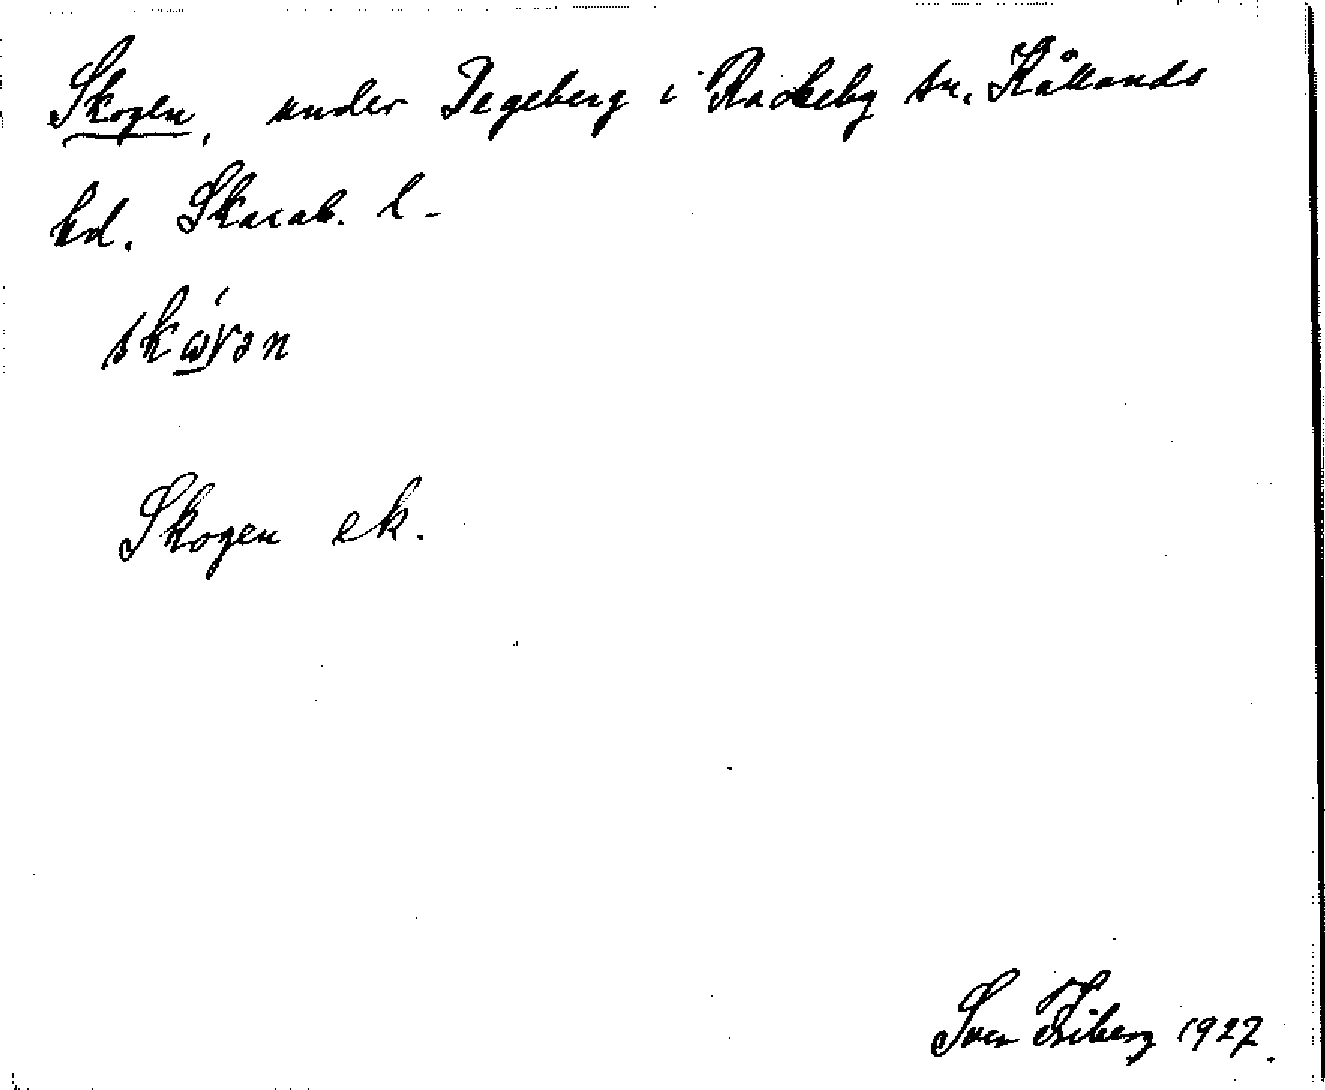 Skogen, under Tegeberg i Rackeby sn. Kållands
hd. Skarab. l.
skώ̲γən
Skogen ek.
Sven Friberg 1927.